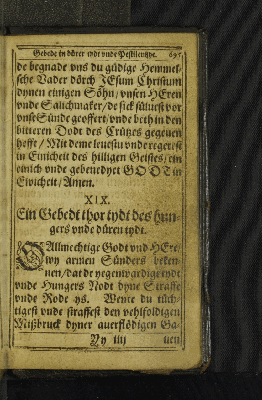 Gebede in dürer tydt vnde Pestilentzye. 695
de begnade vns du güdige Hemmel-
sche Vader dörch JEsum Christum
dynen einigen Söhn / vnsen HEren
vnde Salichmaker / de sick sülvest vor
vnse Sünde geoffert / vnde beth in den
bitteren Dodt des Crützes gegeuen
hefft / Mit deme leuestu vnde regerest
in Einicheit des hilligen Geistes / ein
einich vnde gebenedyet GODT in
Ewicheit / Amen.
XIX.
Ein Gebedt thor tydt des hun-
gers vnde düren tydt.
O Allmechtige Godt vnd HEre /
wy armen Sünders beken-
nen / dat de yegenwardige tydt
vnde Hungers Nodt dyne Straffe
vnde Rode ys. Wente du tüch-
tigest vnde straffest den vehlfoldigen
Mißbruck dyner auerflödigen Ga-
Yy iiij uen